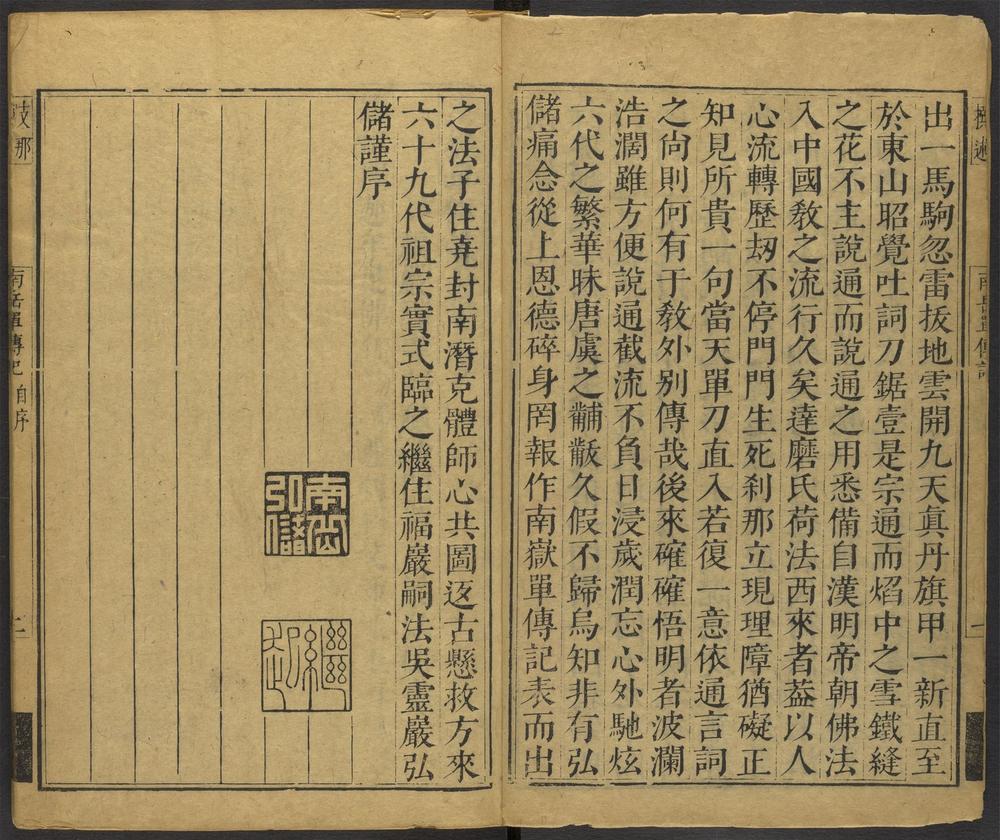 出一馬駒忽雷拔地雲開九天眞丹旗甲一新直至
於東山昭覺吐詞刀鋸壹是宗通而熖中之雪鐵縫
之花不主說通而說通之用悉備自漢明帝朝佛法
入中國敎之流行久矣達磨氏荷法西來者葢以人
心流轉歷刼不停門門生死刹那立現理障猶礙正
知見所貴一句當天單刀直入若復一意依通言詞
之尙則何有于敎外别傳哉後來確確悟明者波瀾
浩濶雖方便說通截流不負日浸歲潤忘心外馳炫
六代之繁華昧唐虞之黼黻久假不歸烏知非有弘
儲痛念從上恩德碎身罔報作南嶽單傳記表而出
之法子住堯封南潛克體師心共圖返古懸救方來
六十九代祖宗實式臨之繼住福嚴嗣法吳靈嚴弘
儲謹序
南岳弘儲
繼起
南岳單傳記
自序
二
南岳單傳記
一
支那
撰述